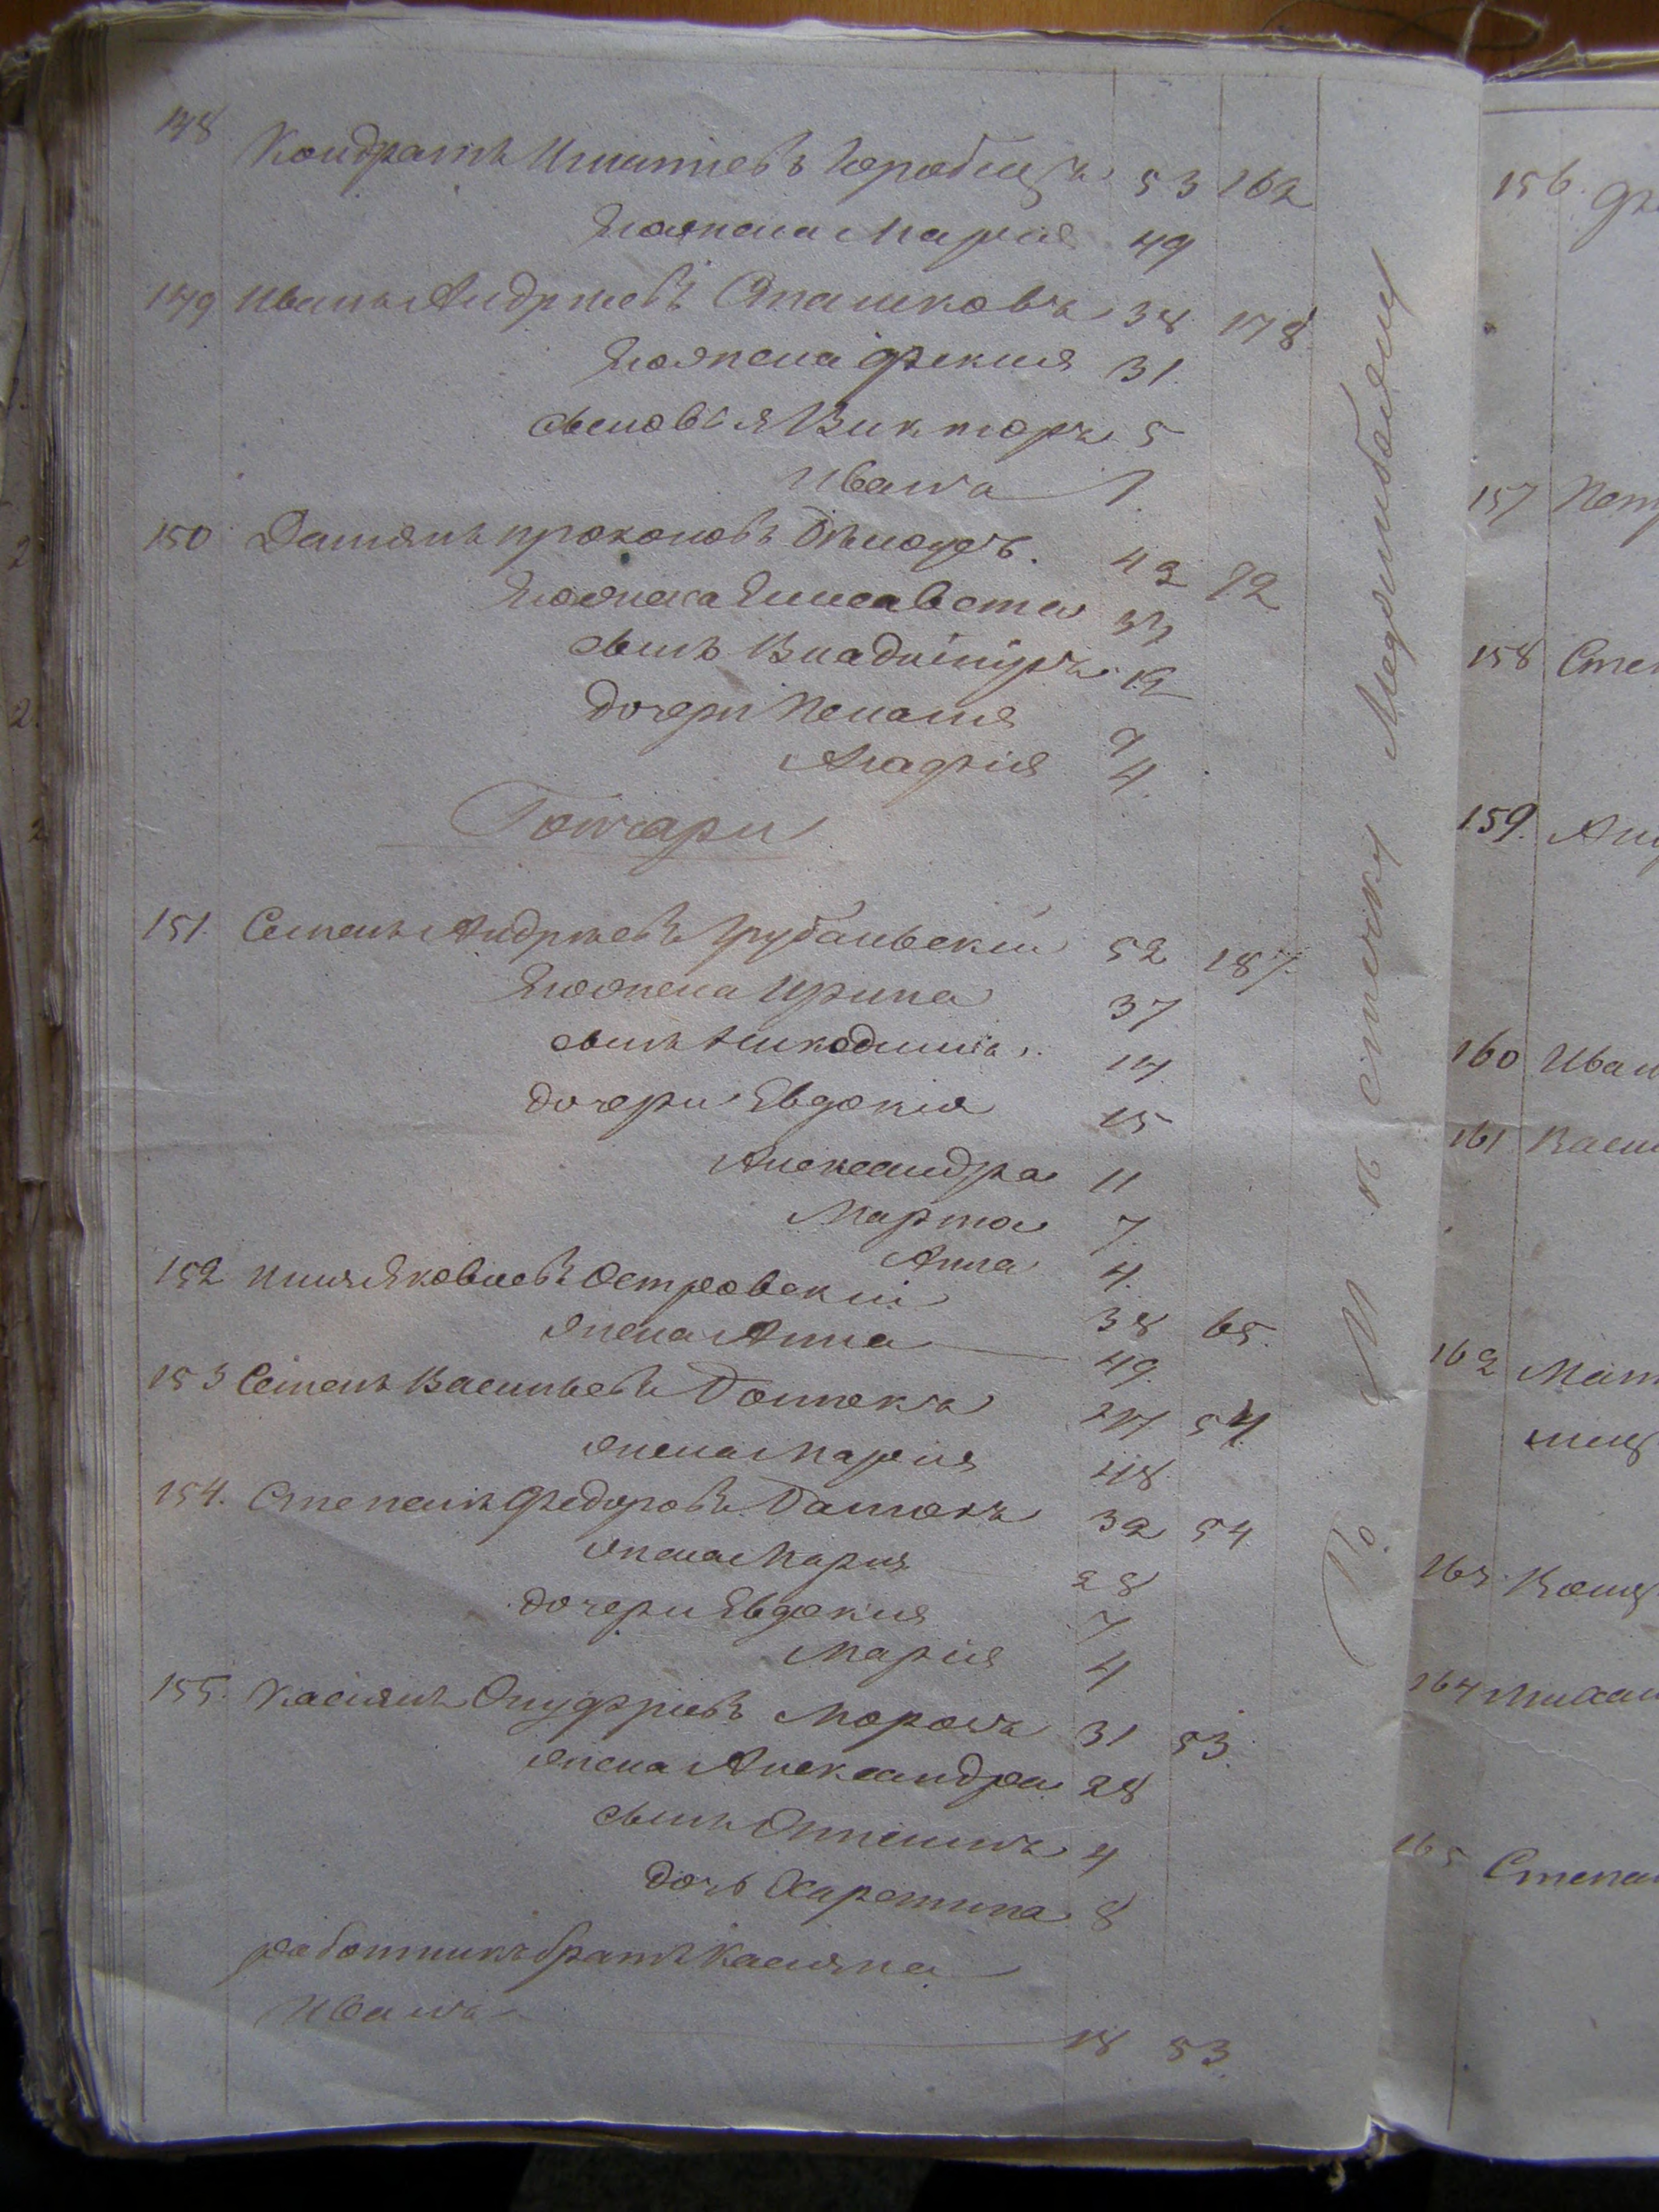 148 Кондратъ Игнатіевъ 53 162
Его жена Марія 49
149 Иванъ Андреевъ Сташковъ 38 178
Его жена Фекля 31
сыновья Викторъ 5
Иванъ 1
150 Даміянъ Прокоповъ 42 92
Его жена Елисавета 33
сынъ Владиміръ 12
дочери Пелагія 9
Агафія 4
Гончари
151. Семенъ Андреевъ Грубальскій 52 187.
Его жена Ирина 37
сынъ Никодимъ 14
дочери Евдокія 15
Александра 11
Марта 7
Анна 4
152 Илья Яковлевъ Островскій 38 65.
жена Анна 49
153 Семенъ Васильевъ 54
жена Марія 48
154. Степанъ Федоровъ 32 54
жена Марія 28
дочери Евдокія 7
Марія 4
155. Касіянъ Онуфріевъ Морозъ 31 53
жена Александра 28
сынъ 4
дочь Харетина 8
работникъ братъ Касіяна
Иванъ 18 53
По М къ стечку Меджибожу
156.
157 Пет
158 Сте
159. Ан
160 Иван
161 Васи
162 Мат
164 Михаи
165 Степа